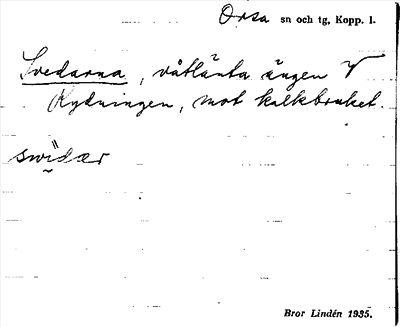 Orsa sn och tg, Kopp. l.
Svedarna, våtlänta ängen V
Rydningen, mot kalkbruket.
swidær
Bror Lindén 1935.